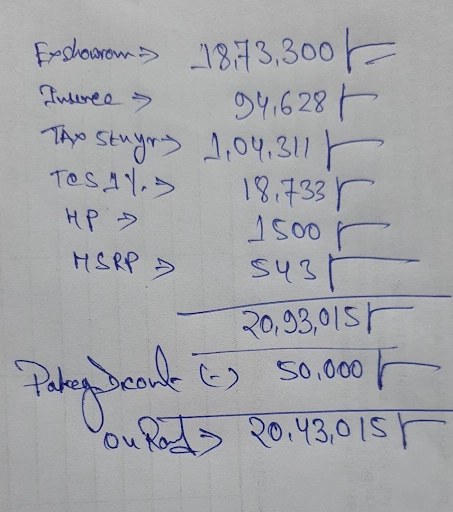 Exshowrom => 18,73,300/-
Insurce => 94,628/-
TAX 5tuyr => 1,04,311/-
TCS 1% => 18,733/-
HP => 1500/-
HSRP => 543/-
20,93,015/-
Dcount (-) 50,000/-
On Road => 20,43,015/-